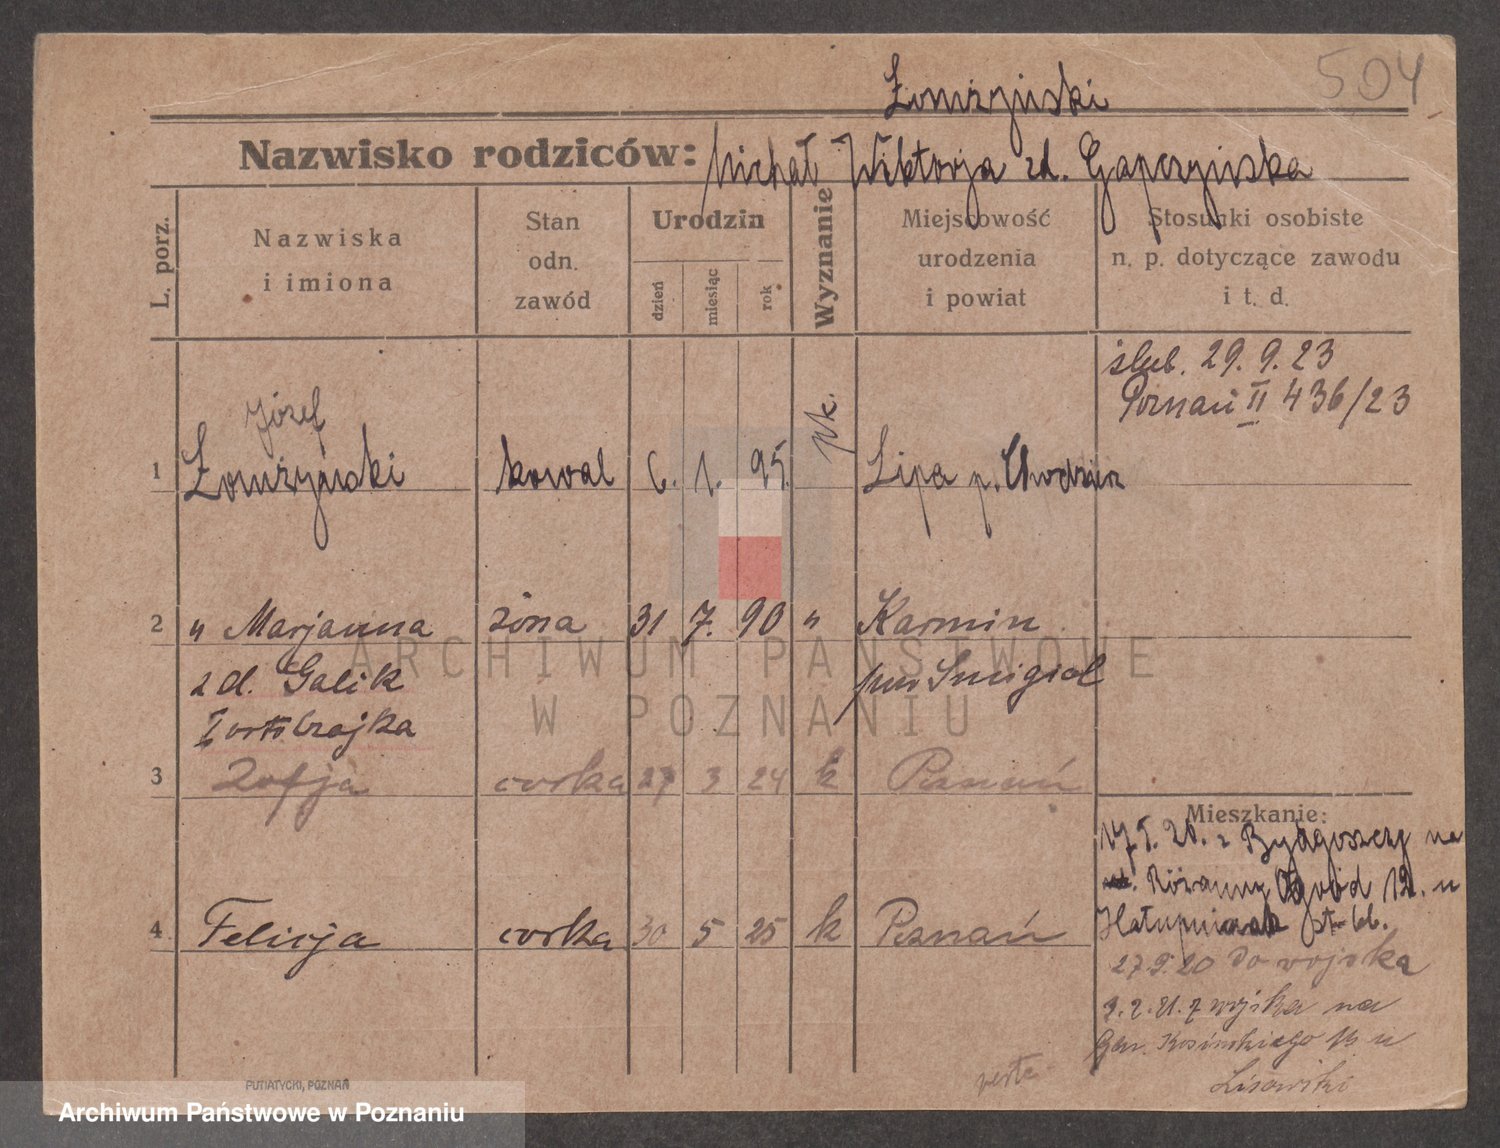 504
Łomżyński
Nazwisko rodziców: Michał Wiktorja zd. Gapczyńska
L. porz.
Nazwiska
i imiona
Stan
odn.
zawód
Urodzin
dzień
miesiąc
rok
Wyznanie
Miejscowość
urodzenia
i powiat
Stosunki osobiste
n. p. dotyczące zawodu
i t. d.
ślub. 29. 9. 23
Poznań II 436/23
Józef
1 Łomżyński kowal 6. 1. 95. rk. Lipa p. Chodzież
2 " Marjanna żona 31 7. 90 " Karmin
zd. Galik pow Śmigiel
I voto
3 Zofja corka 27 3 24 k Poznań
4 Felicja corka 30 5 25 k Poznań
Mieszkanie:
20. z Bydgoszczy na
Różanny Ogród 12. u
27.9.20 do wojska
9.2.21. z wojska na
Gen. Kosińskiego u
Lisowski
PUTIATYCKI, POZNAŃ
ARCHIWUM PAŃSTWOWE
W POZNANIU
Archiwum Państwowe w Poznaniu